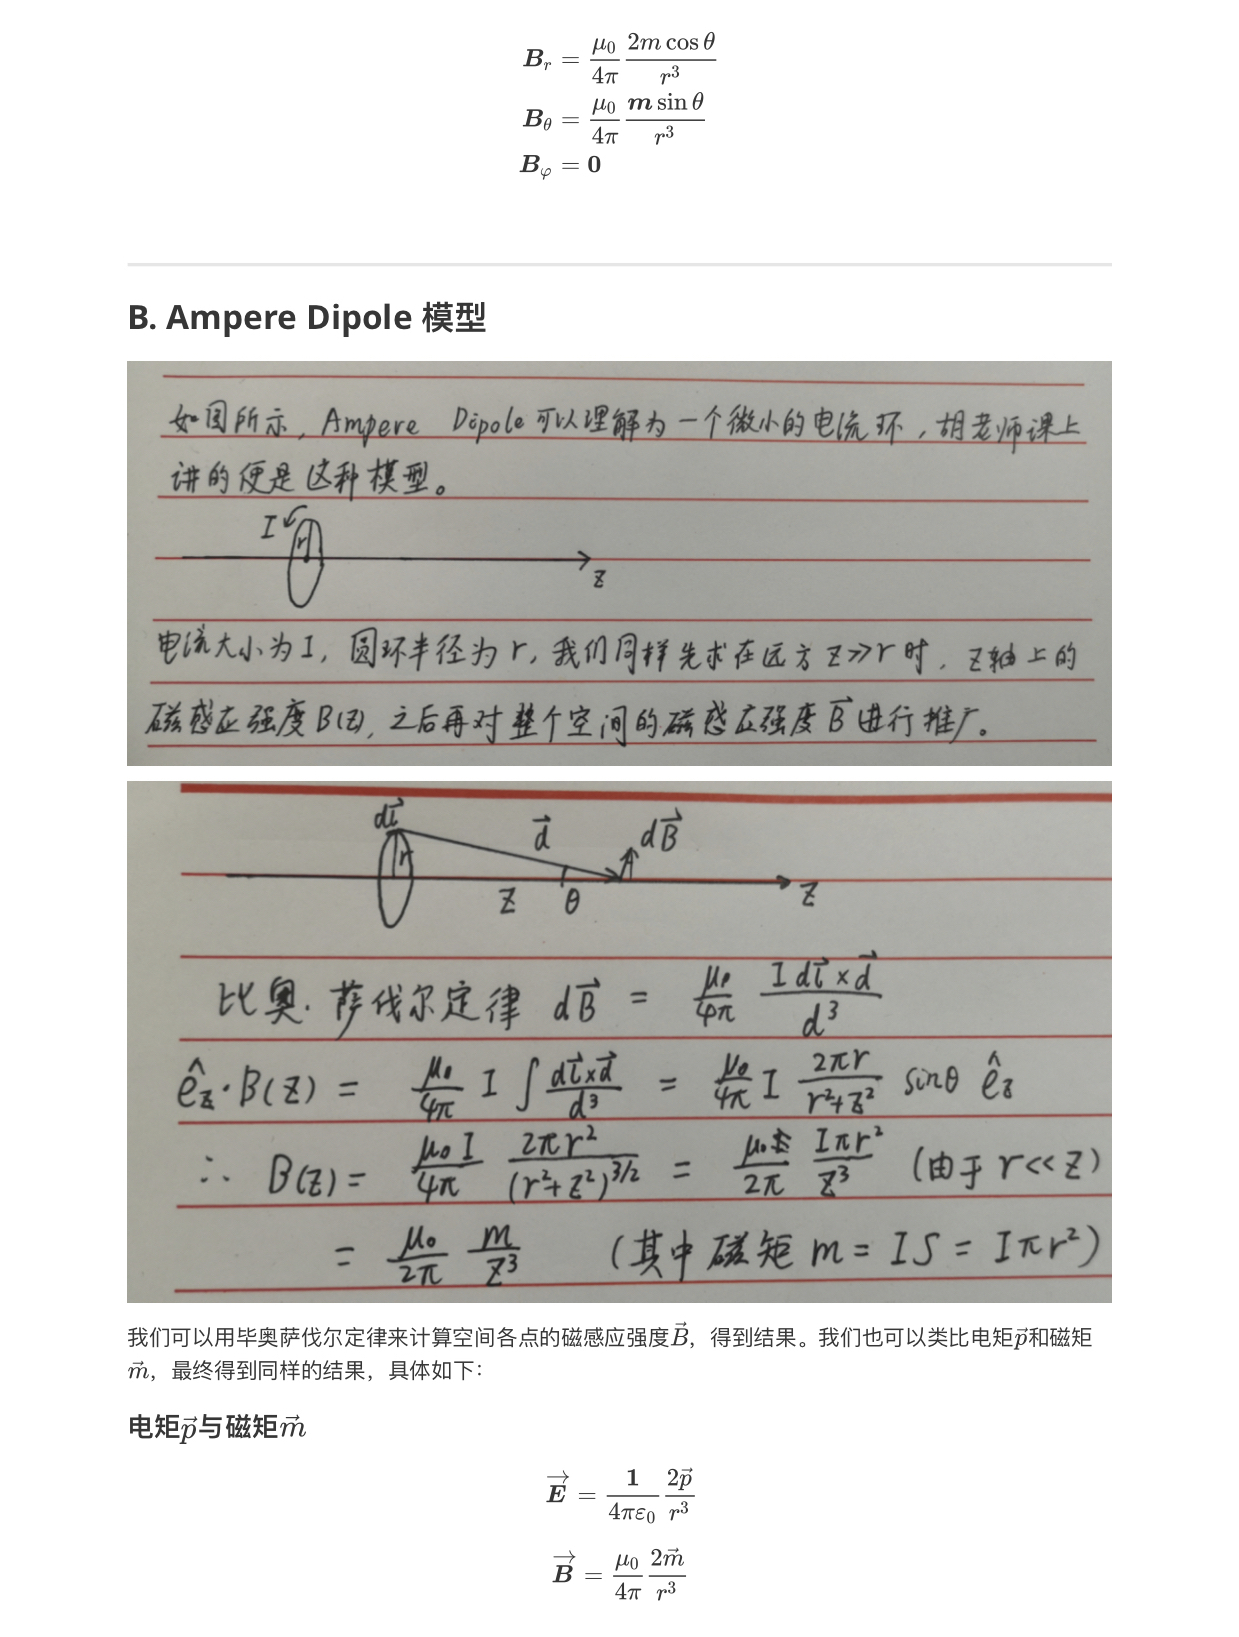 B_r = \frac{μ_0}{4π} \frac{2m cos θ}{r^3}
B_θ = \frac{μ_0}{4π} \frac{m sin θ}{r^3}
B_φ = 0
B. Ampere Dipole 模型
如图所示, Ampere Dipole 可以理解为一个微小的电流环, 胡老师课上
讲的便是这种模型。
I
r
z
电流大小为 I, 圆环半径为 r, 我们同样先求在远方 z≫r 时, z轴上的
磁感应强度 B(z), 之后再对整个空间的磁感应强度 \vec{B} 进行推广。
d\vec{l}
\vec{d}
d\vec{B}
r
z
θ
z
比奥·萨伐尔定律 d\vec{B} = \frac{μ_0}{4π} \frac{I d\vec{l}×\vec{d}}{d^3}
\hat{e}_z·B(z) = \frac{μ_0}{4π} I ∫ \frac{d\vec{l}×\vec{d}}{d^3} = \frac{μ_0}{4π} I \frac{2πr}{r^2+z^2} sinθ \hat{e}_z
∴ B(z) = \frac{μ_0 I}{4π} \frac{2πr^2}{(r^2+z^2)^{3/2}} = \frac{μ_0}{2π} \frac{Iπr^2}{z^3} (由于 r≪z)
= \frac{μ_0}{2π} \frac{m}{z^3} (其中磁矩 m = IS = Iπr^2)
我们可以用毕奥萨伐尔定律来计算空间各点的磁感应强度\vec{B}，得到结果。我们也可以类比电矩\vec{p}和磁矩
\vec{m}，最终得到同样的结果，具体如下：
电矩\vec{p}与磁矩\vec{m}
\vec{E} = \frac{1}{4πε_0} \frac{2\vec{p}}{r^3}
\vec{B} = \frac{μ_0}{4π} \frac{2\vec{m}}{r^3}